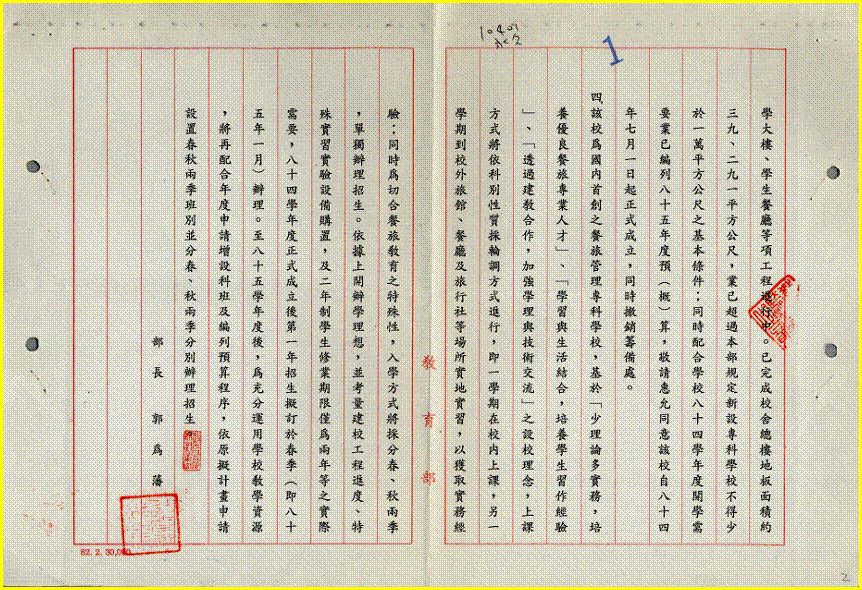 1
學大樓、學生餐廳等項工程進行中。已完成校舍總樓地板面積約
三九、二九一平方公尺，業已超過本部規定新設專科學校不得少
於一萬平方公尺之基本條件；同時配合學校八十四學年度開學需
要業已編列八十五年度預（概）算，敬請惠允同意該校自八十四
年七月一日起正式成立，同時撤銷籌備處。
四、該校為國內首創之餐旅管理專科學校，基於「少理論多實務，培
養優良餐旅專業人才」、「學習與生活結合，培養學生習作經驗
」、「透過建教合作，加強學理與技術交流」之設校理念，上課
方式將依科別性質採輪調方式進行，即一學期在校內上課，另一
學期到校外旅館、餐廳及旅行社等場所實地實習，以獲取實務經
教育部
驗；同時為切合餐旅教育之特殊性，入學方式將採分春、秋兩季
，單獨辦理招生。依據上開辦學理想，並考量建校工程進度、特
殊實習實驗設備購置，及二年制學生修業期限僅為兩年等之實際
需要，八十四學年度正式成立後第一年招生擬訂於春季（即八十
五年一月）辦理。至八十五學年度後，為充分運用學校教學資源
，將再配合年度申請增設科班及編列預算程序，依原擬計畫申請
設置春秋兩季班別並分春、秋兩季分別辦理招生。
部長 郭為藩
82. 2. 30,000
2